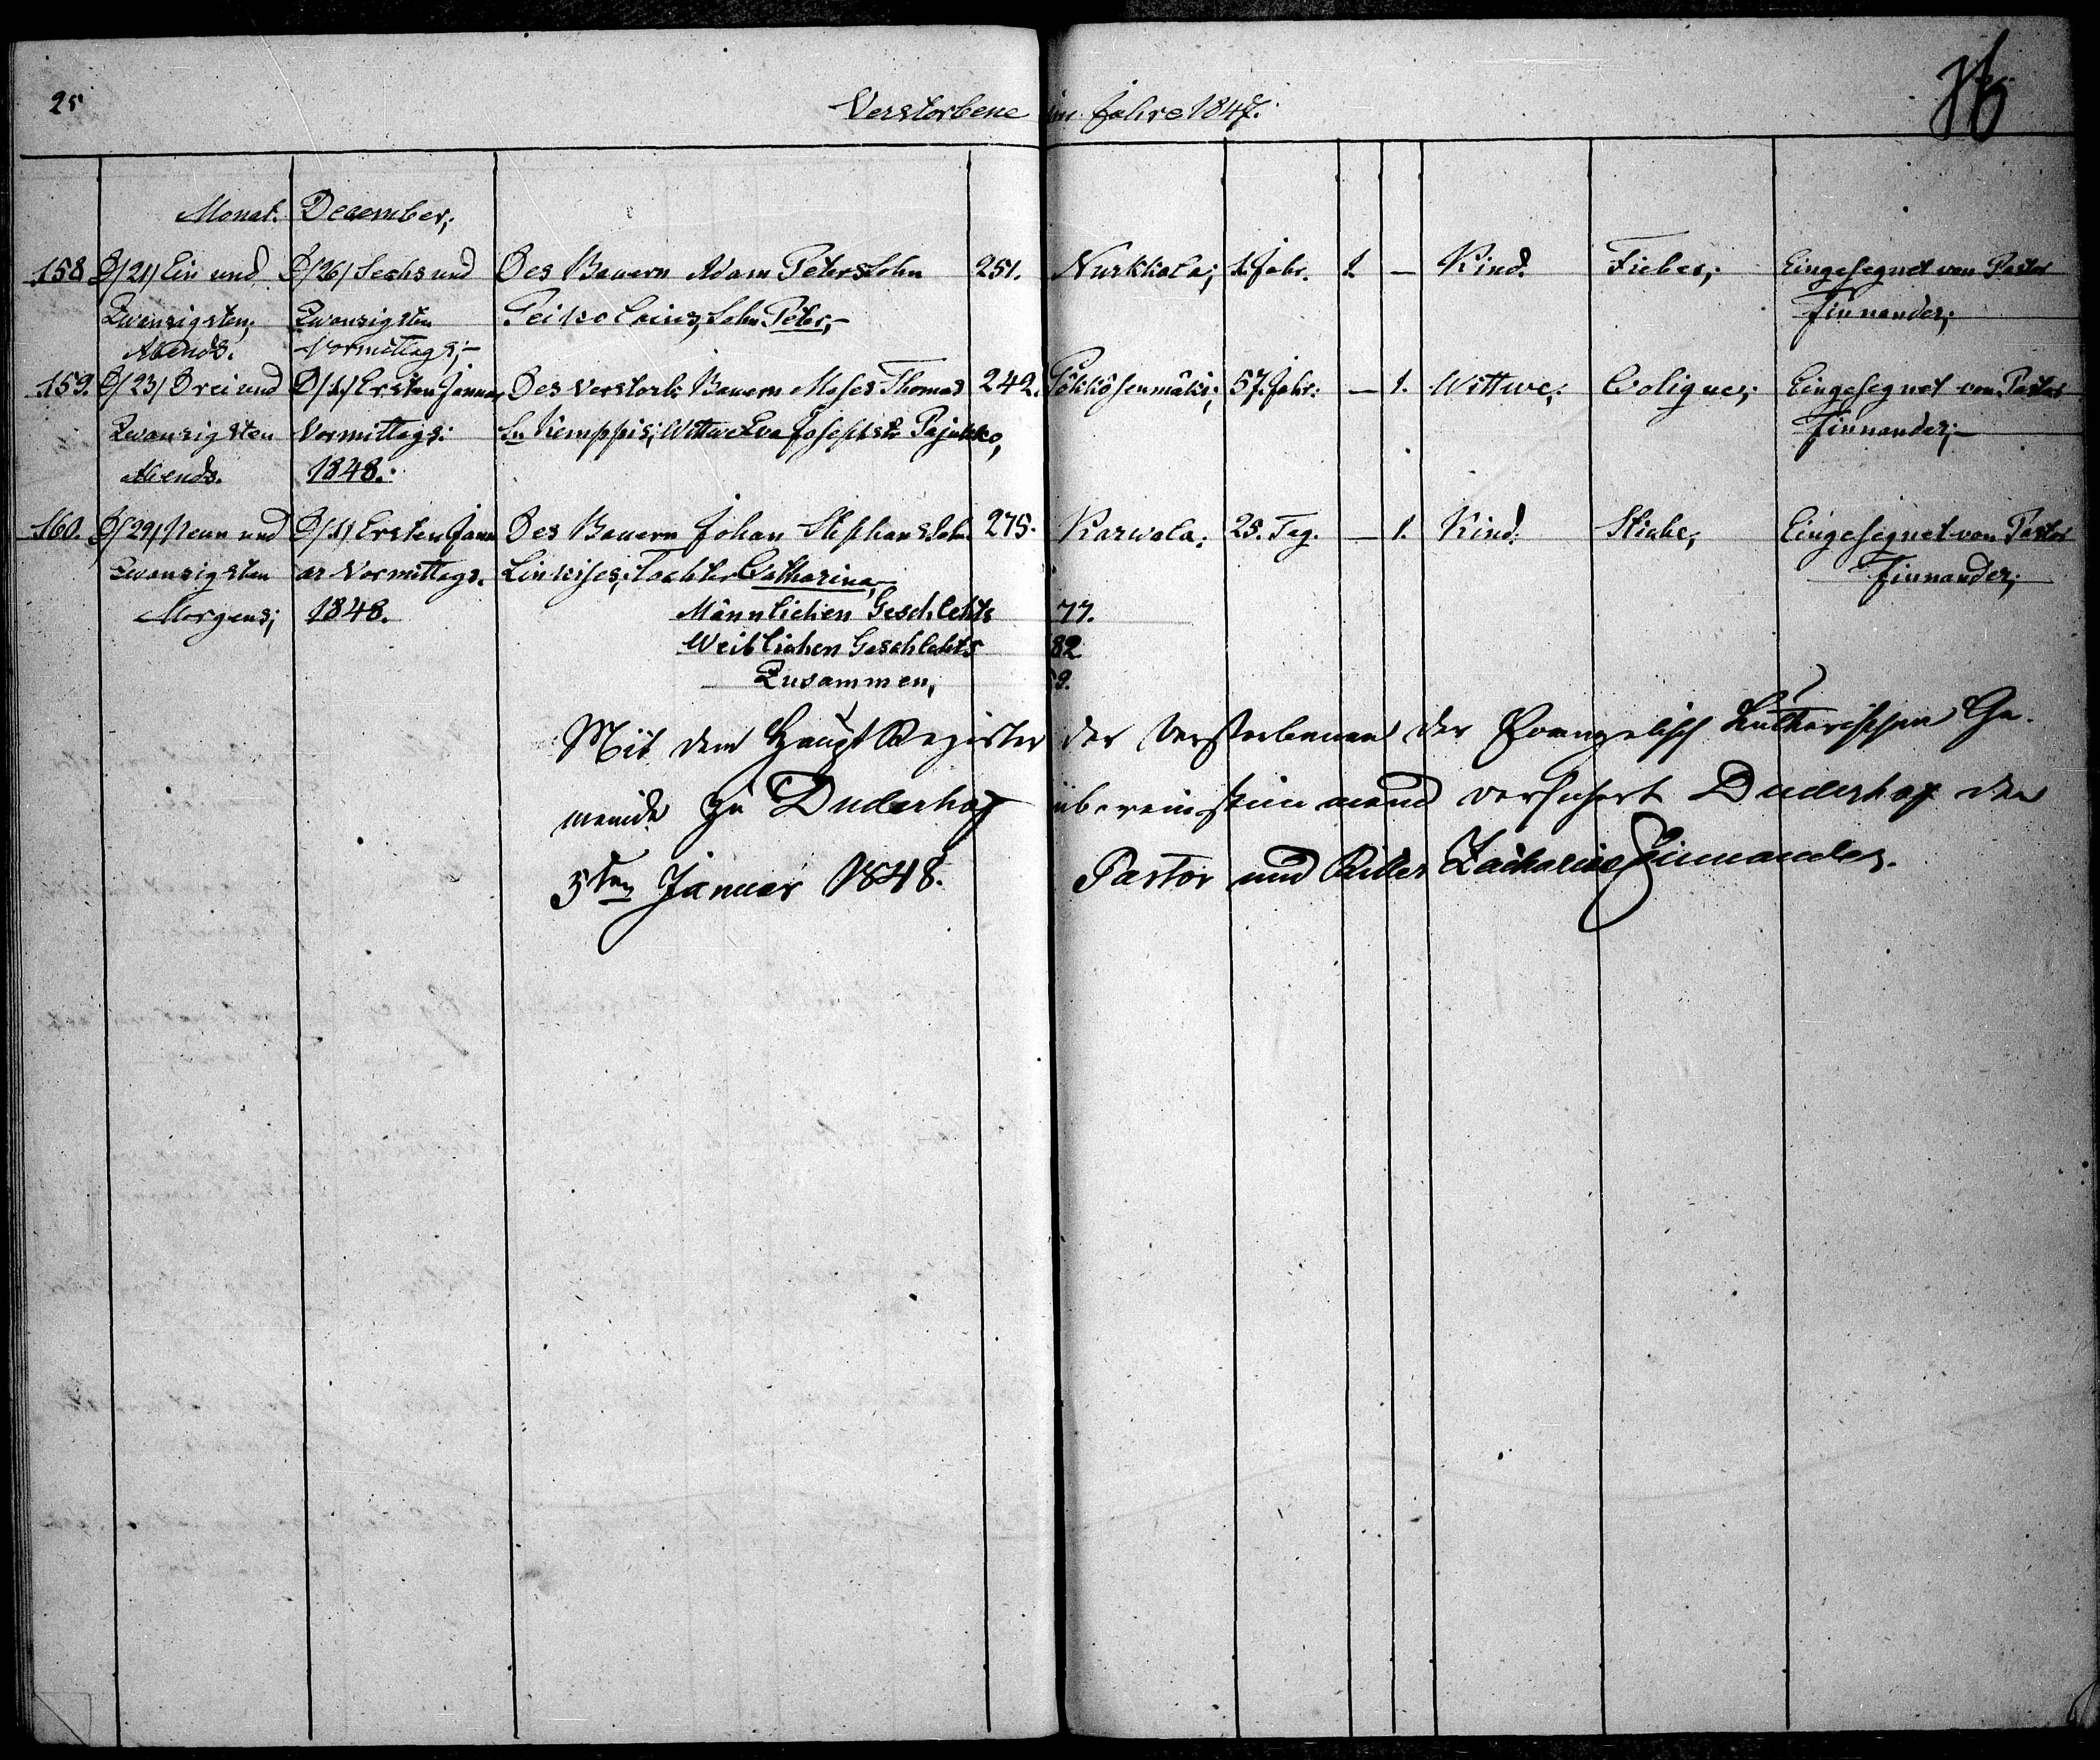 25
Verstorbene im Jahre 1847.
Monat. December;
158 D/21/ Ein und D/26/ Sechs und Des Bauern Adam Peterssohn 251. Nurkkola; 1 Jahr. 1 — Kind. Fieber; Eingesegnet von Pastor
Zwanzigsten, Zwanzigsten Peikolains, Sohn Peter,- Finnander;
Abends. Vormittags;-
159. D/23/ Drei und D/1/ Ersten Januar Des Verstorb: Bauern Moses Thomas 242. 57. Jahr: — 1. Wittwe; Colique; Eingesegnet von Pastor
Zwanzigsten Vormittags: Sn Kemppis; Wittwe Eva Josephstr Pajukko, Finnander;-
Abends. 1848.
160. D/29/ Neun und D/1/ Ersten Janu Des Bauern Johan Stephans Sohn 275. Karwala; 25. Tag. — 1. Kind. Eingesegnet von Pastor
Zwanzigsten ar Vormittags. Tochter Catharina, Finnander;
Morgens; 1848. Männlichen Geschlehts 77.
Weiblichen Geschlehts 82
Zusammen, 9.
Mit dem Haupt Register der Verstorbenen der Evangelisch Lutherischen Ge-
meinde zu Duderhof übereinstimmend versichert Duderhof den
5ten Januar 1848. Pastor und Ritter Zacharias Finnander.